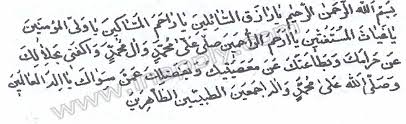 بِسْمِ اللّٰهِ الرَّحْمٰنِ الرَّحِيْمِ يَا رَازِقَ السَّائِلِيْنَ يَا رَاحِمَ الْمَسَاكِيْنَ يَا وَلِيَّ الْمُؤْمِنِيْنَ
يَا غِيَاثَ الْمُسْتَغِيْثِيْنَ يَا اَرْحَمَ الرَّاحِمِيْنَ صَلِّ عَلٰى مُحَمَّدٍ وَّاٰلِ مُحَمَّدٍ وَّاكْفِنِيْ بِحَلَالِكَ
عَنْ حَرَامِكَ وَبِطَاعَتِكَ عَنْ مَعْصِيَتِكَ وَبِفَضْلِكَ عَمَّنْ سِوَاكَ يَا اِلٰهَ الْعَالَمِيْنَ
وَصَلَّى اللّٰهُ عَلٰى مُحَمَّدٍ وَّاٰلِهٖ اَجْمَعِيْنَ الطَّيِّبِيْنَ الطَّاهِرِيْنَ